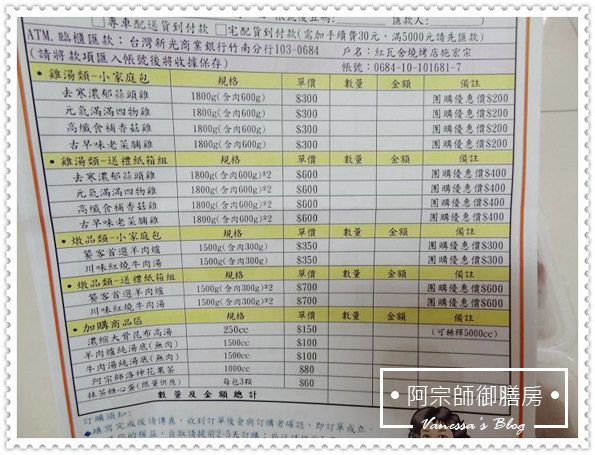 專車配送貨到付款 宅配貨到付款(需加手續費30元，滿5000元請先匯款)
ATM.臨櫃匯款：台灣新光商業銀行竹南分行103-0684 戶名：紅瓦舍燒烤店施宏宗
(請將款項匯入帳號後將收據保存) 帳號：0684-10-101681-7
•雞湯類-小家庭包 規格 單價 數量 金額 備註
去寒濃郁蒜頭雞 1800g(含肉600g) $300 團購優惠價$200
元氣滿滿四物雞 1800g(含肉600g) $300 團購優惠價$200
高纖食補香菇雞 1800g(含肉600g) $300 團購優惠價$200
古早味老菜脯雞 1800g(含肉600g) $300 團購優惠價$200
•雞湯類-送禮紙箱組 規格 單價 數量 金額 備註
去寒濃郁蒜頭雞 1800g(含肉600g)*2 $600 團購優惠價$400
元氣滿滿四物雞 1800g(含肉600g)*2 $600 團購優惠價$400
高纖食補香菇雞 1800g(含肉600g)*2 $600 團購優惠價$400
古早味老菜脯雞 1800g(含肉600g)*2 $600 團購優惠價$400
•燉品類-小家庭包 規格 單價 數量 金額 備註
饕客首選羊肉爐 1500g(含肉300g) $350 團購優惠價$300
川味紅燒牛肉湯 1500g(含肉300g) $350 團購優惠價$300
•燉品類-送禮紙箱組 規格 單價 數量 金額 備註
饕客首選羊肉爐 1500g(含肉300g)*2 $700 團購優惠價$600
川味紅燒牛肉湯 1500g(含肉300g)*2 $700 團購優惠價$600
•加購商品區 規格 單價 數量 金額 備註
濃縮大骨昆布高湯 250cc $150 (可稀釋5000cc)
羊肉爐純湯底(無肉) 1500cc $100
牛肉湯純湯底(無肉) 1500cc $100
阿宗師洛神花果茶 1000cc $80
抹茶糖心蛋(限量供應) 每包3顆 $60
數量及金額總計
訂購須知：
◆填寫完成後請傳真，收到訂單後會與訂購者確認，即訂單成立。
•阿宗師御膳房•
Vanessa's Blog